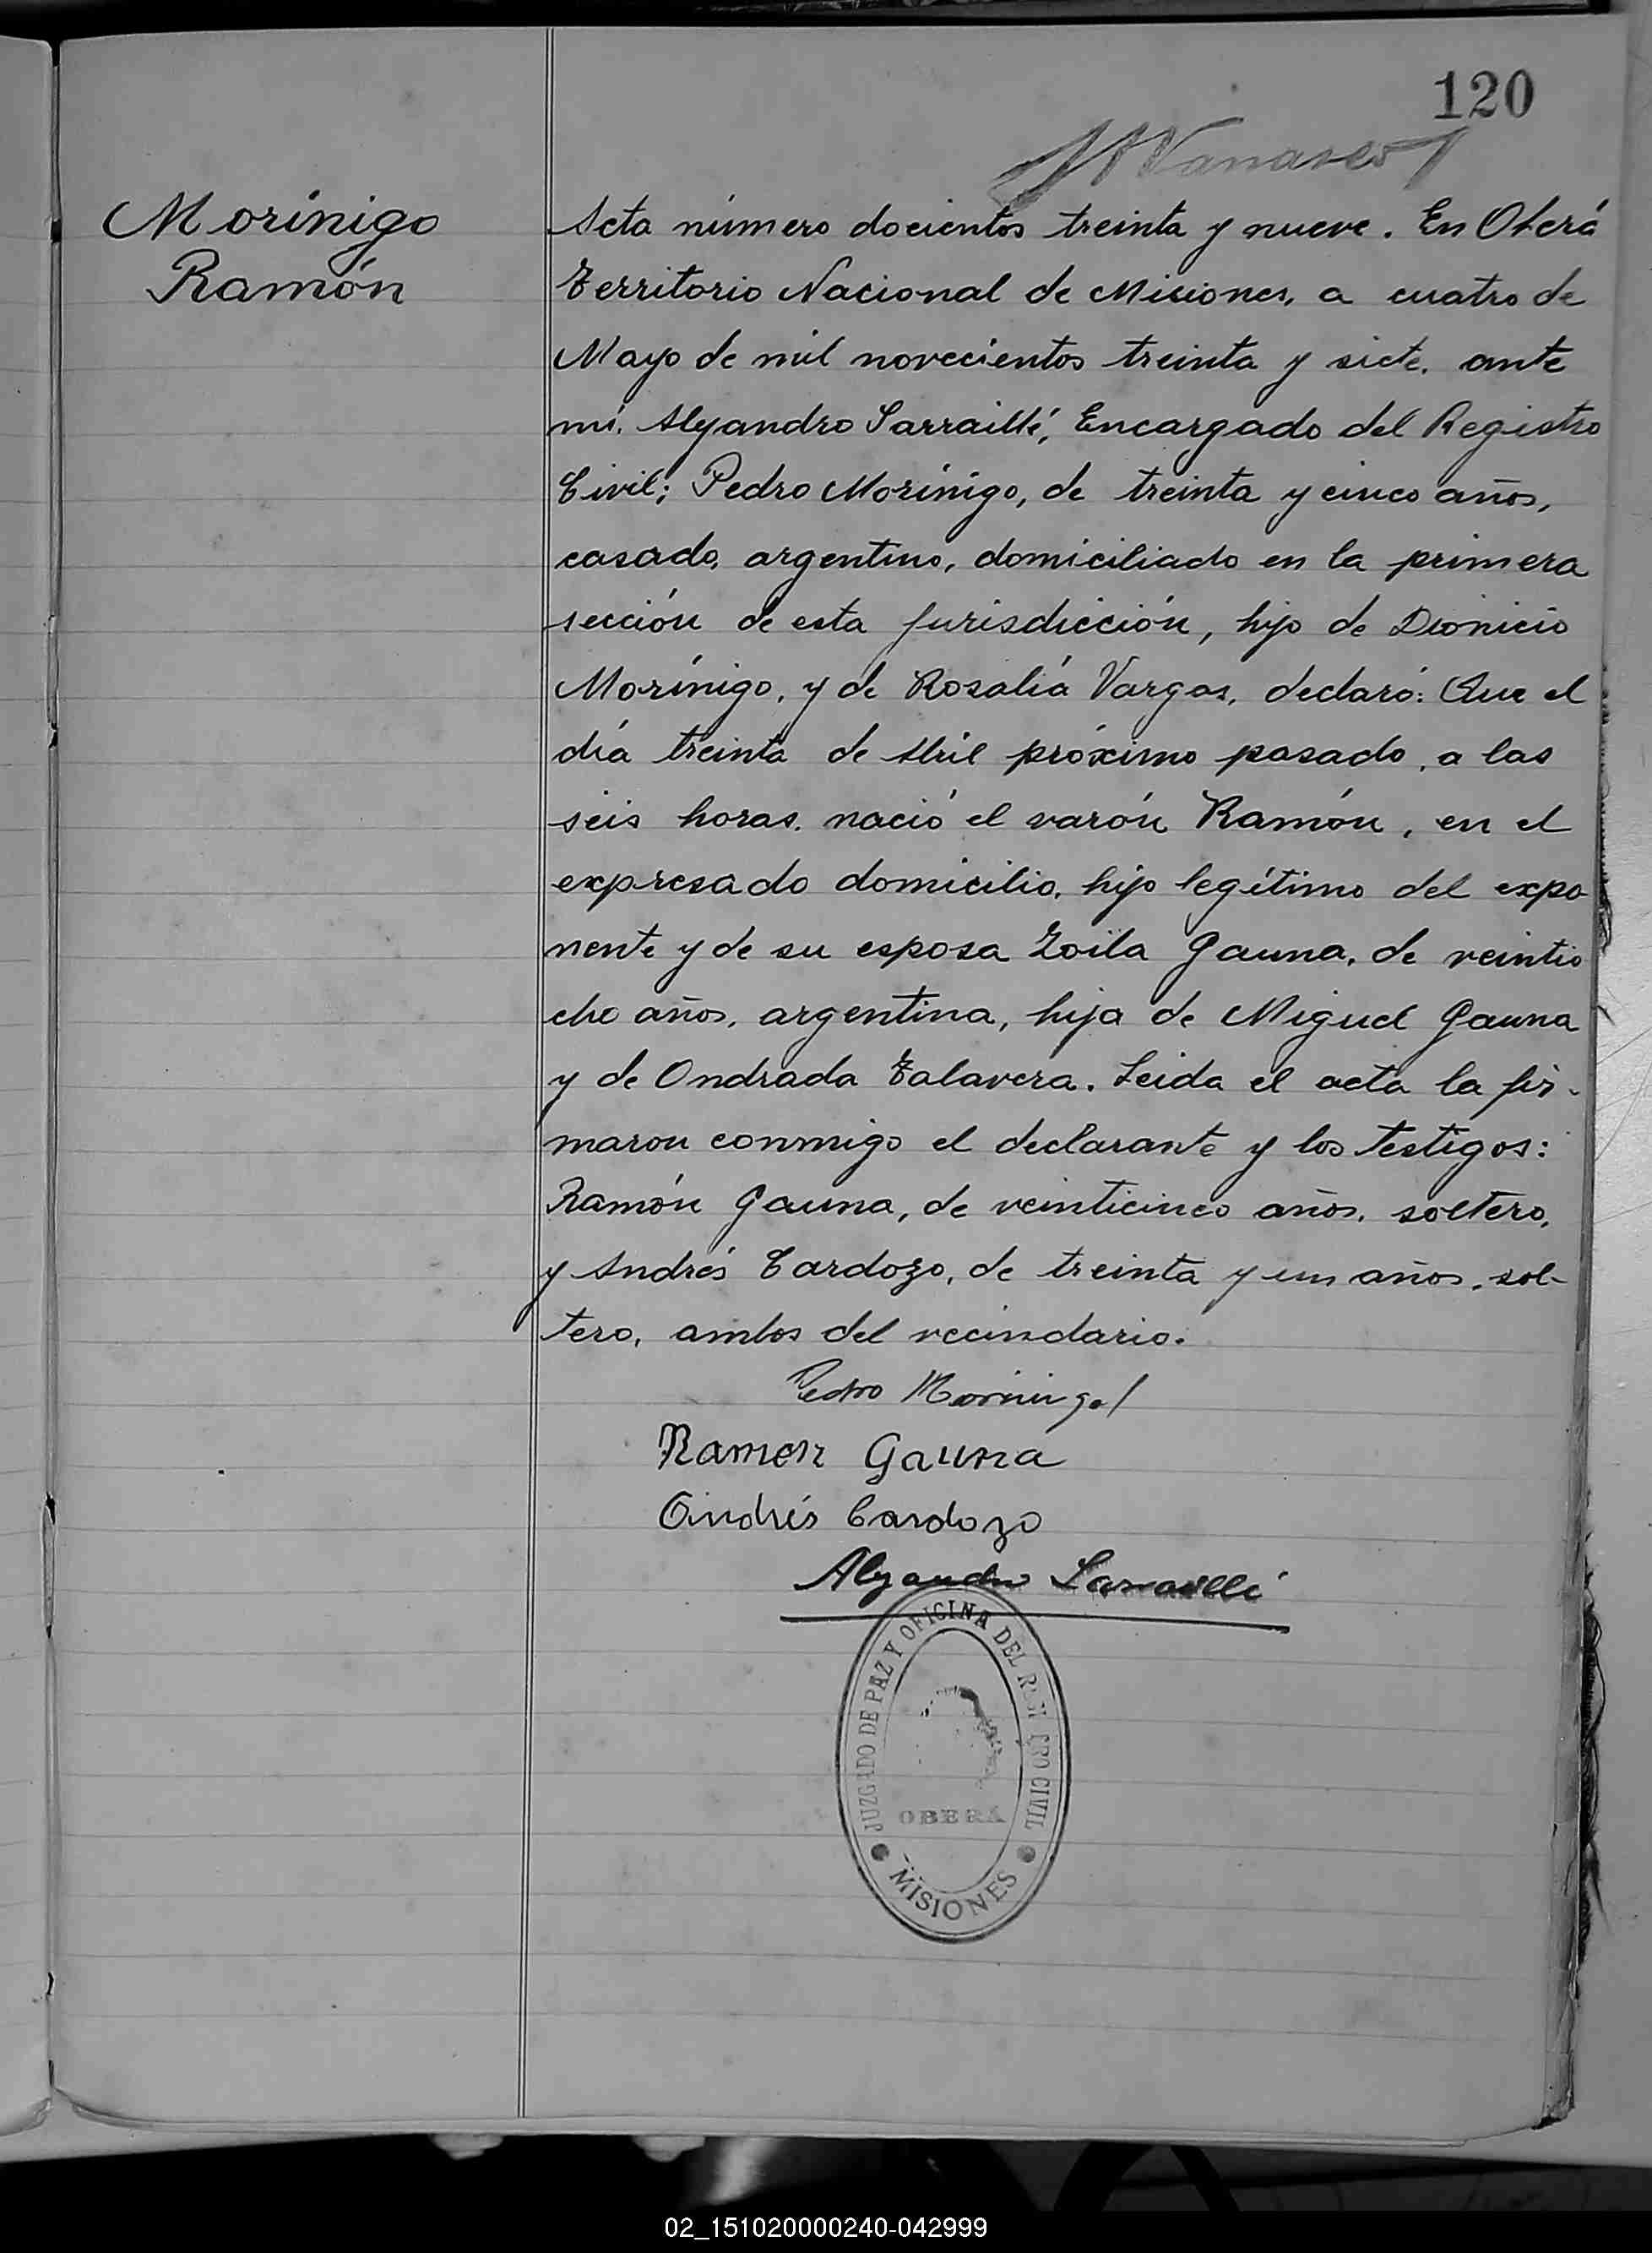 120
Morínigo
Ramón
Acta número docientos treinta y nueve. En Oberá
Territorio Nacional de Misiones, a cuatro de
Mayo de mil novecientos treinta y siete, ante
mí, Alejandro Sarraillé, Encargado del Registro
Civil; Pedro Morínigo, de treinta y cinco años,
casado, argentino, domiciliado en la primera
sección de esta jurisdicción, hijo de Dionicio
Morínigo, y de Rosalía Vargas, declaró: Que el
día treinta de Abril próximo pasado, a las
seis horas, nació el varón Ramón, en el
expresado domicilio, hijo legítimo del expo
nente y de su esposa Zoila Gauna, de veintio
cho años, argentina, hija de Miguel Gauna
y de Ondrada Talavera. Leida el acta la fir-
maron conmigo el declarante y los testigos:
Ramón Gauna, de veinticinco años, soltero,
y Andrés Cardozo, de treinta y un años, sol-
tero, ambos del vecindario.
Pedro Morinigo
Ramon Gauna
Andrés Cardozo
Alejandro Sarraillé
JUZGADO DE PAZ Y OFICINA DEL REGISTRO CIVIL
OBERÁ
MISIONES
02_151020000240-042999